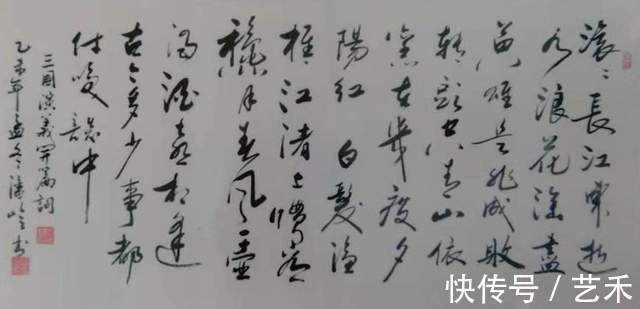 滚〻長江東逝
水浪花淘盡
英雄是非成敗
轉頭空青山依
舊在幾度夕
陽紅白髮漁
樵江渚上慣看
龝月春风一壺
濁酒喜相逢
古今多少事都
付笑談中
三国演義開篇詞
乙未年孟冬潘书
快传号/艺禾